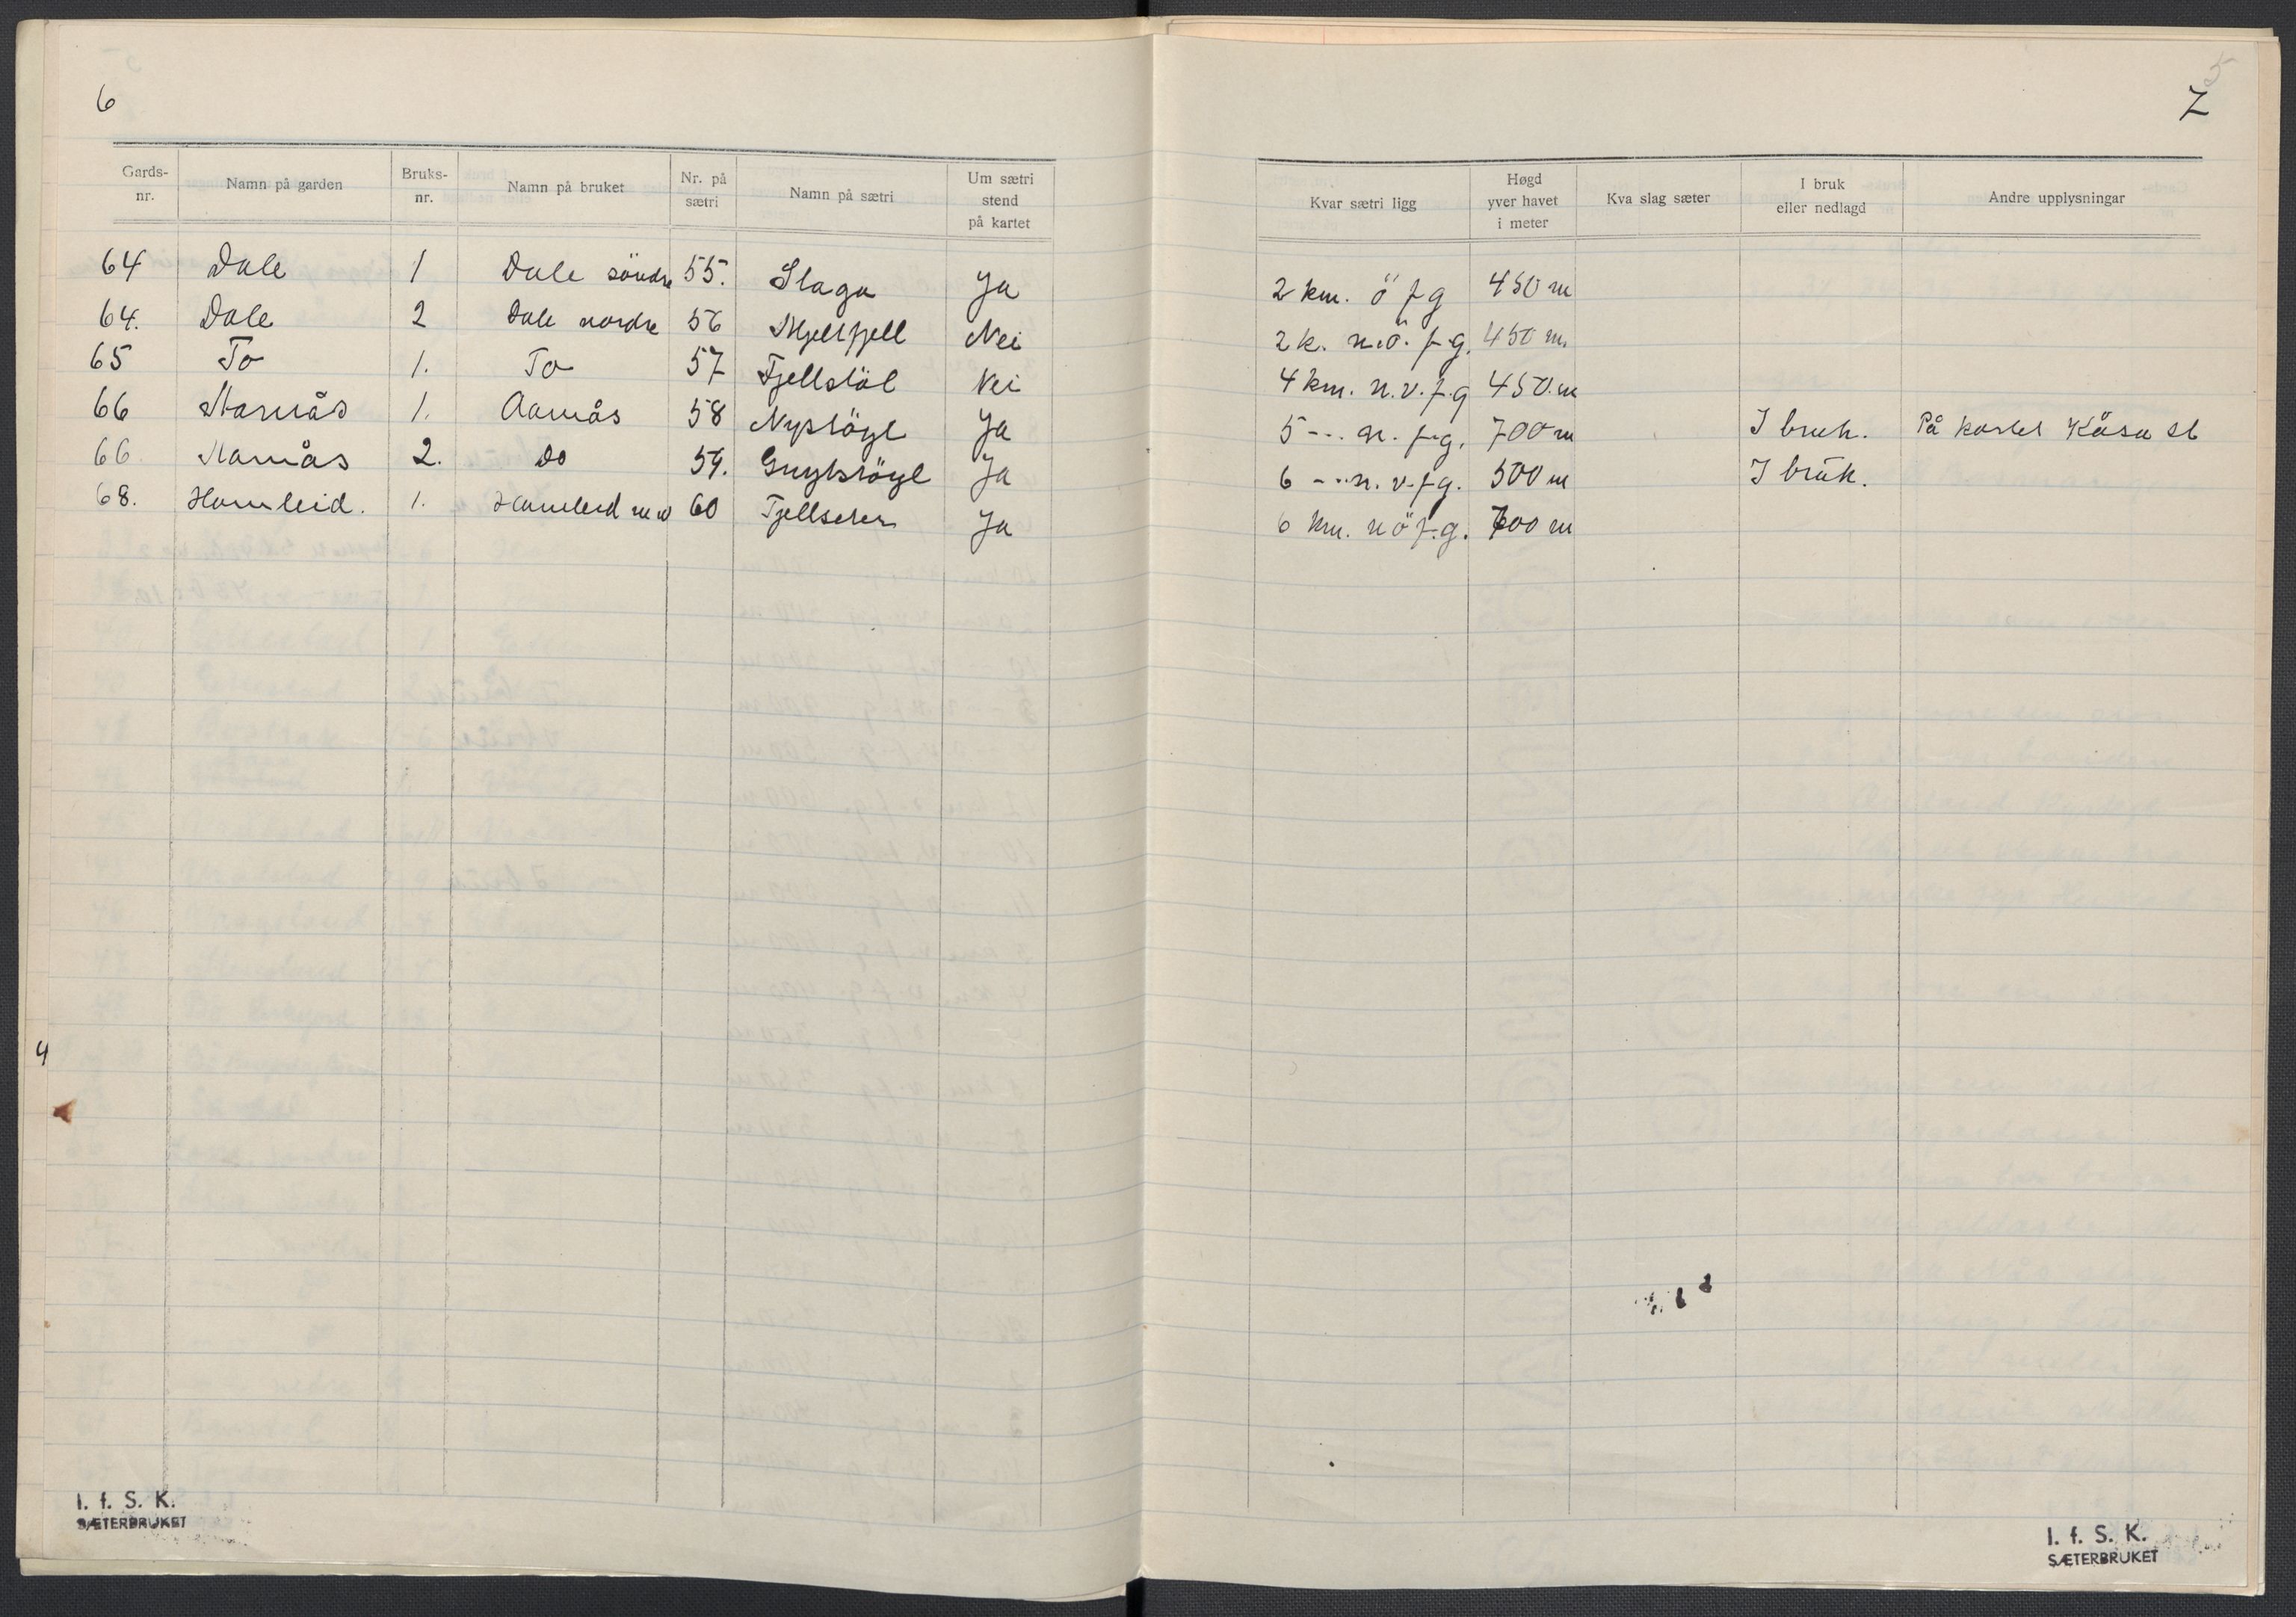 6
Gards-nr. Namn på garden Bruks-nr. Namn på bruket Nr. på sætri Namn på sætri Um sætri stend på kartet
64 Dale 1 Dale söndre 55. Slaga Ja
64. Dale 2 Dale nordre 56 Nei
65 To 1. To 57 Fjellstöl Nei
66 Aamås 1. Aamås 58 Nystöyl Ja
66. Aamås 2. Do 59. Ja
68. Homleid. 1. Homleid 60 Ja
4
I. f. S. K.
SÆTERBRUKET
7
Kvar sætri ligg Høgd yver havet i meter Kva slag sæter I bruk eller nedlagd Andre upplysningar
2 km. ö f g 450 m
2 k. n.ö. f.g. 450 m.
4 km. n.v.f.g 450.m
5 --- n. f.g. 700 m I bruk. På kartet Kåsa st
6 --- n.v.f.g. 500 m I bruk.
6 km. n ö f.g. 700 m
I. f. S. K.
SÆTERBRUKET